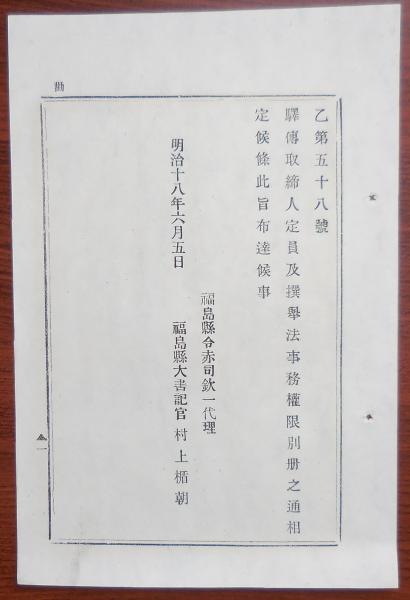 乙第五十八號
驛傳取締人定員及撰擧法事務權限別册之通相
定候條此旨布達候事
明治十八年六月五日
福島縣令赤司欽一代理
福島縣大書記官 村上楯朝
勸
一